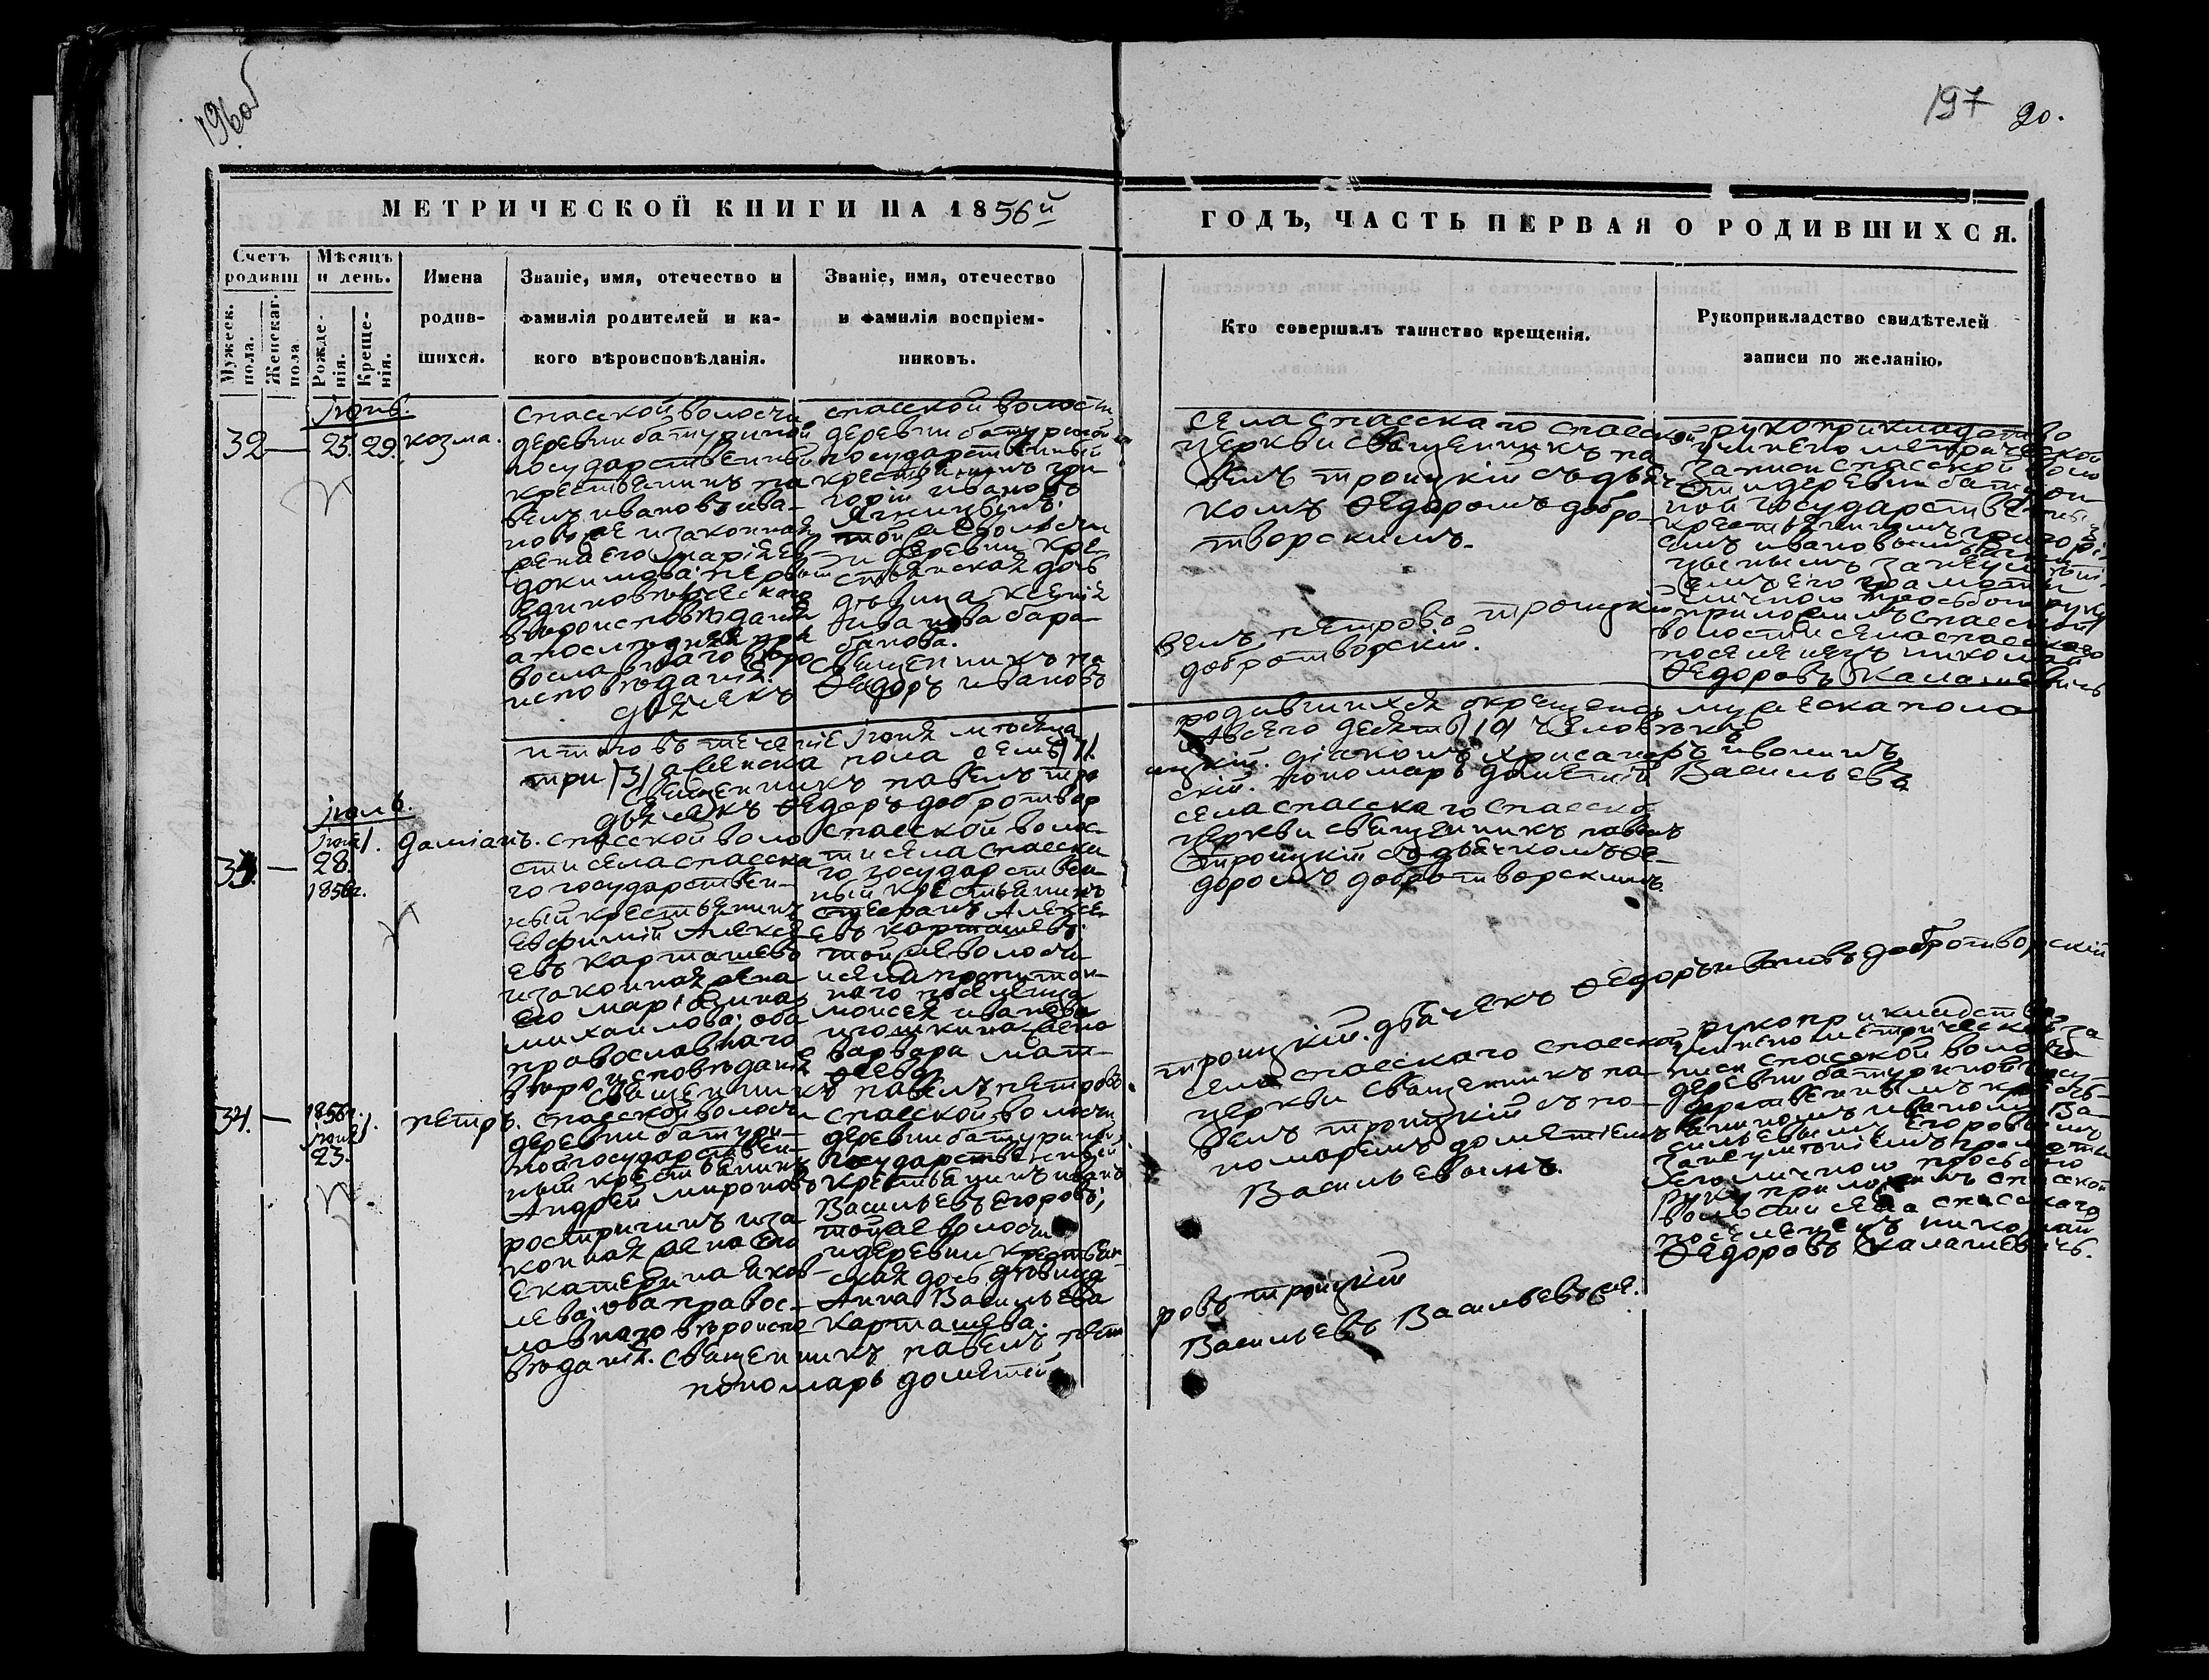 196об
197 20.
МЕТРИЧЕСКОЙ КНИГИ НА 1856й
ГОДЪ, ЧАСТЬ ПЕРВАЯ О РОДИВШИХСЯ.
Счетъ родивш
Мужеск. пола.
Женскаг. пола
Мѣсяцъ и день.
Рожде-нія.
Креще-нія.
Имена
родив-
шихся.
Званіе, имя, отечество и
фамилія родителей и ка-
кого вѣроисповѣданія.
Званіе, имя, отечество
и фамилія воспріем-
никовъ.
Кто совершалъ таинство крещенія.
Рукоприкладство свидѣтелей
записи по желанію.
Іюнь.
32 — 25. 29. козма.
спасской волости
деревни батуриной
государственный
крестьянинъ па-
велъ ивановъ ива-
новъ и законная
жена его марія ев-
докимова: первый
единовѣрческаго
вѣроисповѣданія
а последняя пра
вославнаго вѣро
исповѣданія.
спасской волости
деревни батуриной
государственный
крестьянинъ гри
горій ивановъ
той же волости
и деревни кре-
стьянская дочь
дѣвица ксенія
иванова бара-
банова.
священникъ па
дьячекъ Ѳедоръ ивановъ
села спасскаго спасской
церкви священникъ па
велъ троицкій съ дьяч
комъ Ѳедоромъ добро-
творскимъ.
велъ петровъ троицкій
добротворскій.
рукоприкладство
учинено метрической
записи спасской воло
сти деревни батури
ной государственны
крестьяниномъ григорі
емъ ивановымъ
за неумѣні
емъ его грамоты
личною прозьбою руку
приложилъ спасской
волости села спасскаго
поселенецъ николай
Ѳедоровъ Калашевичъ
итого въ теченіе іюня мѣсяца
три /3/ а женска пола семь /7/.
священникъ павелъ тро
дьячекъ Ѳедоръ добротвор
родившихся окрещено мужеска пола
всего десять /10/ человѣкъ
ицкій. діаконъ хрисанфъ ивонинъ
скій. пономарь дометій Васильевъ
іюль.
33. — іюня 28. 1856г. 1. даміанъ.
спасской воло
сти села спасска
го государствен-
ный крестьянинъ
Евфимій Алексѣ
евъ карташевъ
и законная жена
его марія зинов
михайлова; оба
православнаго
вѣроисповѣданія
спасской волос-
ти села спасска
го государствен-
ный крестьянинъ
стефанъ Алексѣ-
евъ карташевъ.
той же волости
и села
наго поселенца
моисея иванова
игошкина жена
варвара мат-
Ѳеева
священникъ павелъ петровъ
села спасскаго спасской
церкви священникъ павелъ
троицкій съ дьячкомъ Ѳе-
доромъ добротворскимъ.
троицкій. дьячекъ Ѳедоръ ивановъ добротворскій
34. — 1856г. іюня 23. 1. петръ.
спасской волости
деревни батури-
ной государствен-
ный крестьянинъ
Андрей мироновъ
ростригинъ и за
конная жена его
Екатерина яков-
лева: оба правос-
лавнаго вѣроиспо
вѣданія. священникъ павелъ пет
пономарь дометій
спасской волости
деревни батуриной
государственный
крестьянинъ иванъ
Васильевъ Егоровъ;
той же волости
и деревни крестьян
ская дочь дѣвица
Анна Васильева
карташева.
села спасскаго спасской
церкви священникъ па-
велъ троицкій съ по-
номаремъ дометіемъ
Васильевымъ.
ровъ троицкій
Васильевъ Васильевъ же.
рукоприкладство
учинено метрической за
писи спасской волости
деревни батуриной госу-
дарственнымъ кресть-
яниномъ иваномъ Ва-
сильевымъ Егоровымъ
за неумѣніемъ грамоты
его личною прозьбою
руку приложилъ спасской
волости села спасскаго
поселенецъ николай
Ѳедоровъ Калашевичъ.